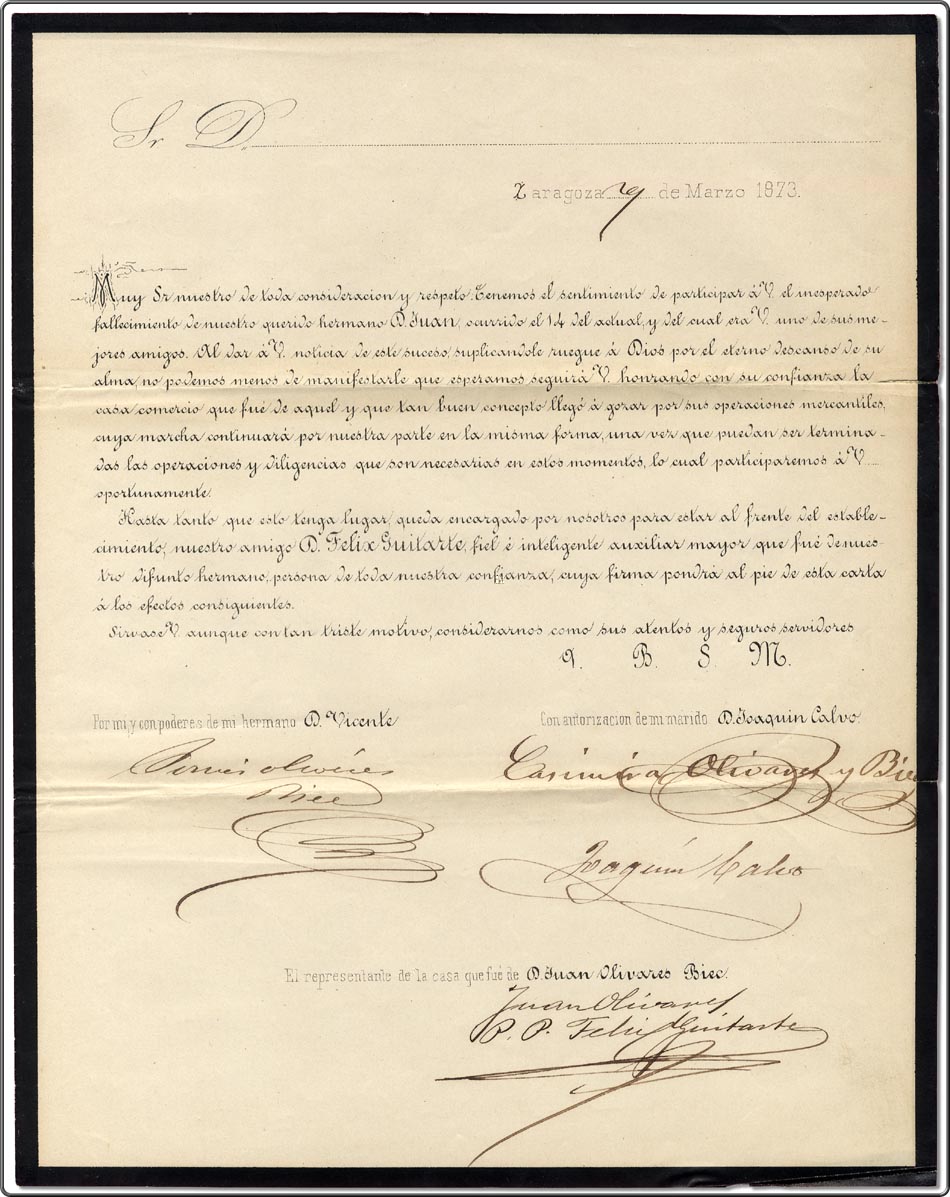 Sr D.
Zaragoza 29 de Marzo 1873.
Muy Sr nuestro de toda consideracion y respeto: Tenemos el sentimiento de participar á V. el inesperado
fallecimiento de nuestro querido hermano D. Juan, ocurrido el 14 del actual, y del cual era V. uno de sus me-
jores amigos. Al dar á V. noticia de este suceso, suplicandole ruegue á Dios por el eterno descanso de su
alma, no podemos menos de manifestarle que esperamos seguirá V. honrando con su confianza la
casa comercio que fué de aquel y que tan buen concepto llegó á gozar por sus operaciones mercantiles,
cuya marcha continuará por nuestra parte en la misma forma, una vez que puedan ser termina-
das las operaciones y diligencias que son necesarias en estos momentos, lo cual participaremos á V.
oportunamente.
Hasta tanto que esto tenga lugar, queda encargado por nosotros para estar al frente del estable-
cimiento, nuestro amigo D. Felix Guitarte, fiel é inteligente auxiliar mayor que fué de nues-
tro difunto hermano, persona de toda nuestra confianza, cuya firma pondrá al pie de esta carta
á los efectos consiguientes.
Sirvase V. aunque con tan triste motivo, considerarnos como sus atentos y seguros servidores
Q. B. S. M.
Por mi, y con poderes de mi hermano D. Vicente
Con autorizacion de mi marido D. Joaquin Calvo.
Olivares
Biec
Casimira Olivares y Biec
Joaquín Calvo
El representante de la casa que fué de D. Juan Olivares Biec.
Juan Olivares
P. P. Felix Guitarte